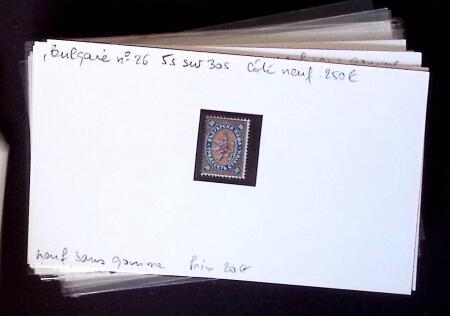 Bulgarie n° 26 5s sur 30s Côté neuf. 250€
БЪЛГАРСКА ПОЩА
neuf sans gomme Prix 20€